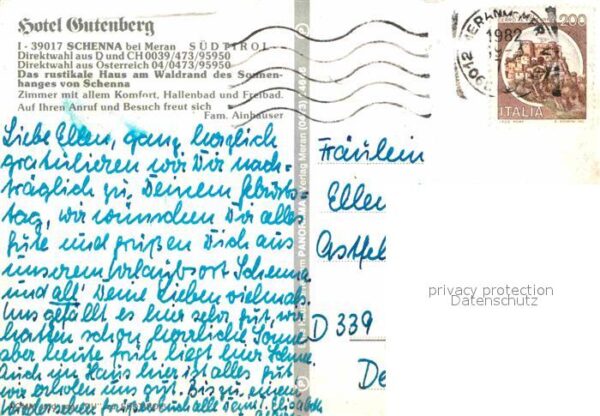 Hotel Gutenberg
I - 39017 SCHENNA bei Meran SÜDTIROL
Direktwahl aus D und CH 0039/473/95950
Direktwahl aus Österreich 04/0473/95950
Das rustikale Haus am Waldrand des Sonnen-
hanges von Schenna
Zimmer mit allem Komfort, Hallenbad und Freibad.
Auf Ihren Anruf und Besuch freut sich
Fam. Ainhauser
Liebe Ellen, ganz herzlich
gratulieren wir Dir nach-
träglich zu Deinem Geburts-
tag, wir wünschen Dir alles
Gute und grüßen Dich aus
unserem Urlaubsort Schenna
und all' Deine Lieben vielmals.
Uns gefällt es hier sehr gut, wir
hatten schon herrliche Sonne
aber heute früh liegt hier Schnee.
Auch im Haus hier ist alles gut
wir erholen uns gut. Bis zu einem
Wiedersehen
PANORAMA Verlag Meran (0473)
Fräulein
Ellen
D 339
1982
39012
200
ITALIA
privacy protection
Datenschutz